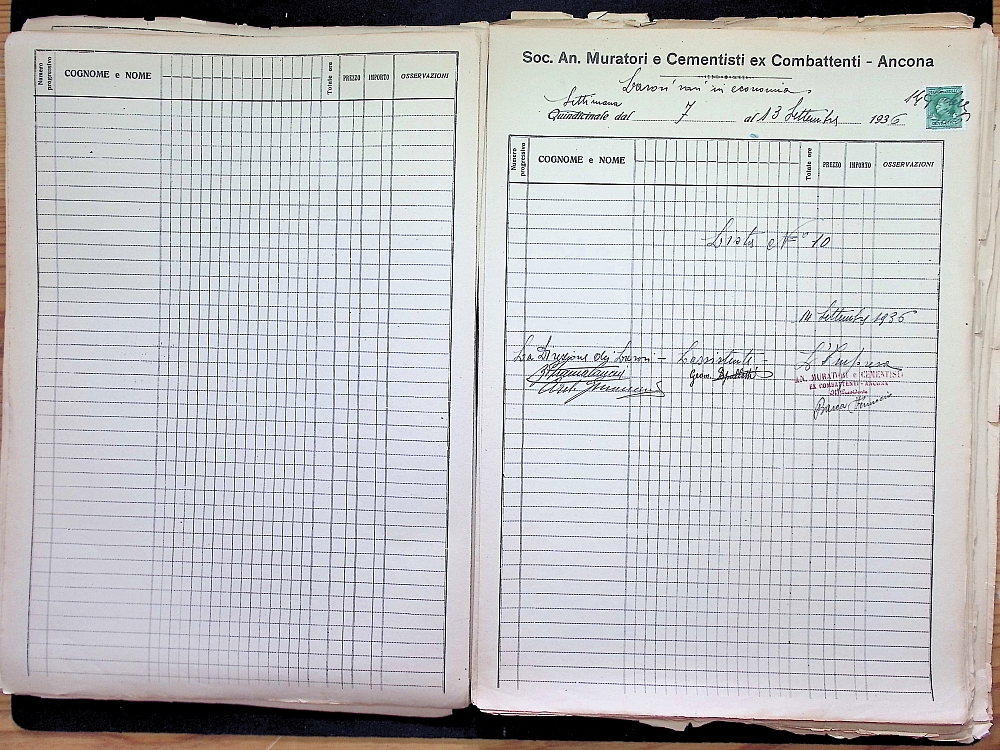 Numero progressivo COGNOME e NOME Totale ore PREZZO IMPORTO OSSERVAZIONI
Soc. An. Muratori e Cementisti ex Combattenti - Ancona
Lavori vari in economia
Settimana
Quindicinale dal 7 al 13 Settembre 1936
Numero progressivo COGNOME e NOME Totale ore PREZZO IMPORTO OSSERVAZIONI
Lista N° 10
14 Settembre 1936
La Direzione dei Lavori - L'assistente - L'Impresa
Geom.
Arch.
AN. MURATORI e CEMENTISTI
EX COMBATTENTI - ANCONA